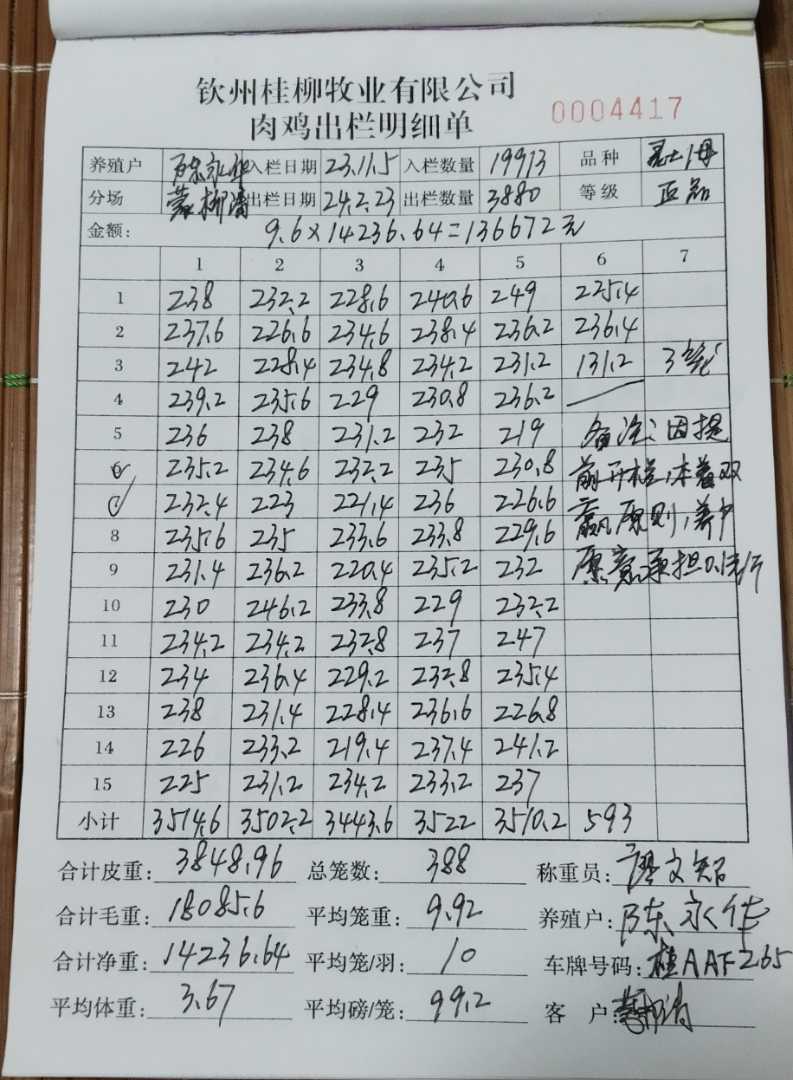 钦州桂柳牧业有限公司
0004417
肉鸡出栏明细单
养殖户 陈永华 入栏日期 23.11.5 入栏数量 19913 品种
分场 出栏日期 24.2.23 出栏数量 3880 等级 正品
金额: 9.6×14236.64=136672元
1 2 3 4 5 6 7
1 238 232.2 228.6 240.6 249 225.4
2 237.6 226.6 234.6 238.4 236.2 236.4
3 242 228.4 234.8 234.2 231.2 131.2 3笼
4 239.2 235.6 229 230.8 236.2
5 236 238 231.2 232 219 备注:因提
6 235.2 234.6 232.2 235 230.8 前开栏,本着双
232.4 223 221.4 236 226.6 赢原则,养户
8 235.6 235 233.6 233.8 229.6
9 231.4 236.2 220.4 235.2 232 愿意承担0.1元/斤
10 230 246.2 233.8 229 232.2
11 234.2 234.2 232.8 237 247
12 234 236.4 229.2 232.8 235.4
13 238 231.4 228.4 236.6 226.8
14 226 233.2 219.4 237.4 241.2
15 225 231.2 234.2 233.2 237
小计 3514.6 3502.2 3443.6 3522 3510.2 593
合计皮重: 3848.96 总笼数: 388 称重员: 文韬
合计毛重: 18085.6 平均笼重: 9.92 养殖户: 陈永华
合计净重: 14236.64 平均笼/羽: 10 车牌号码: 桂AAF265
平均体重: 3.67 平均磅/笼: 99.2 客户: